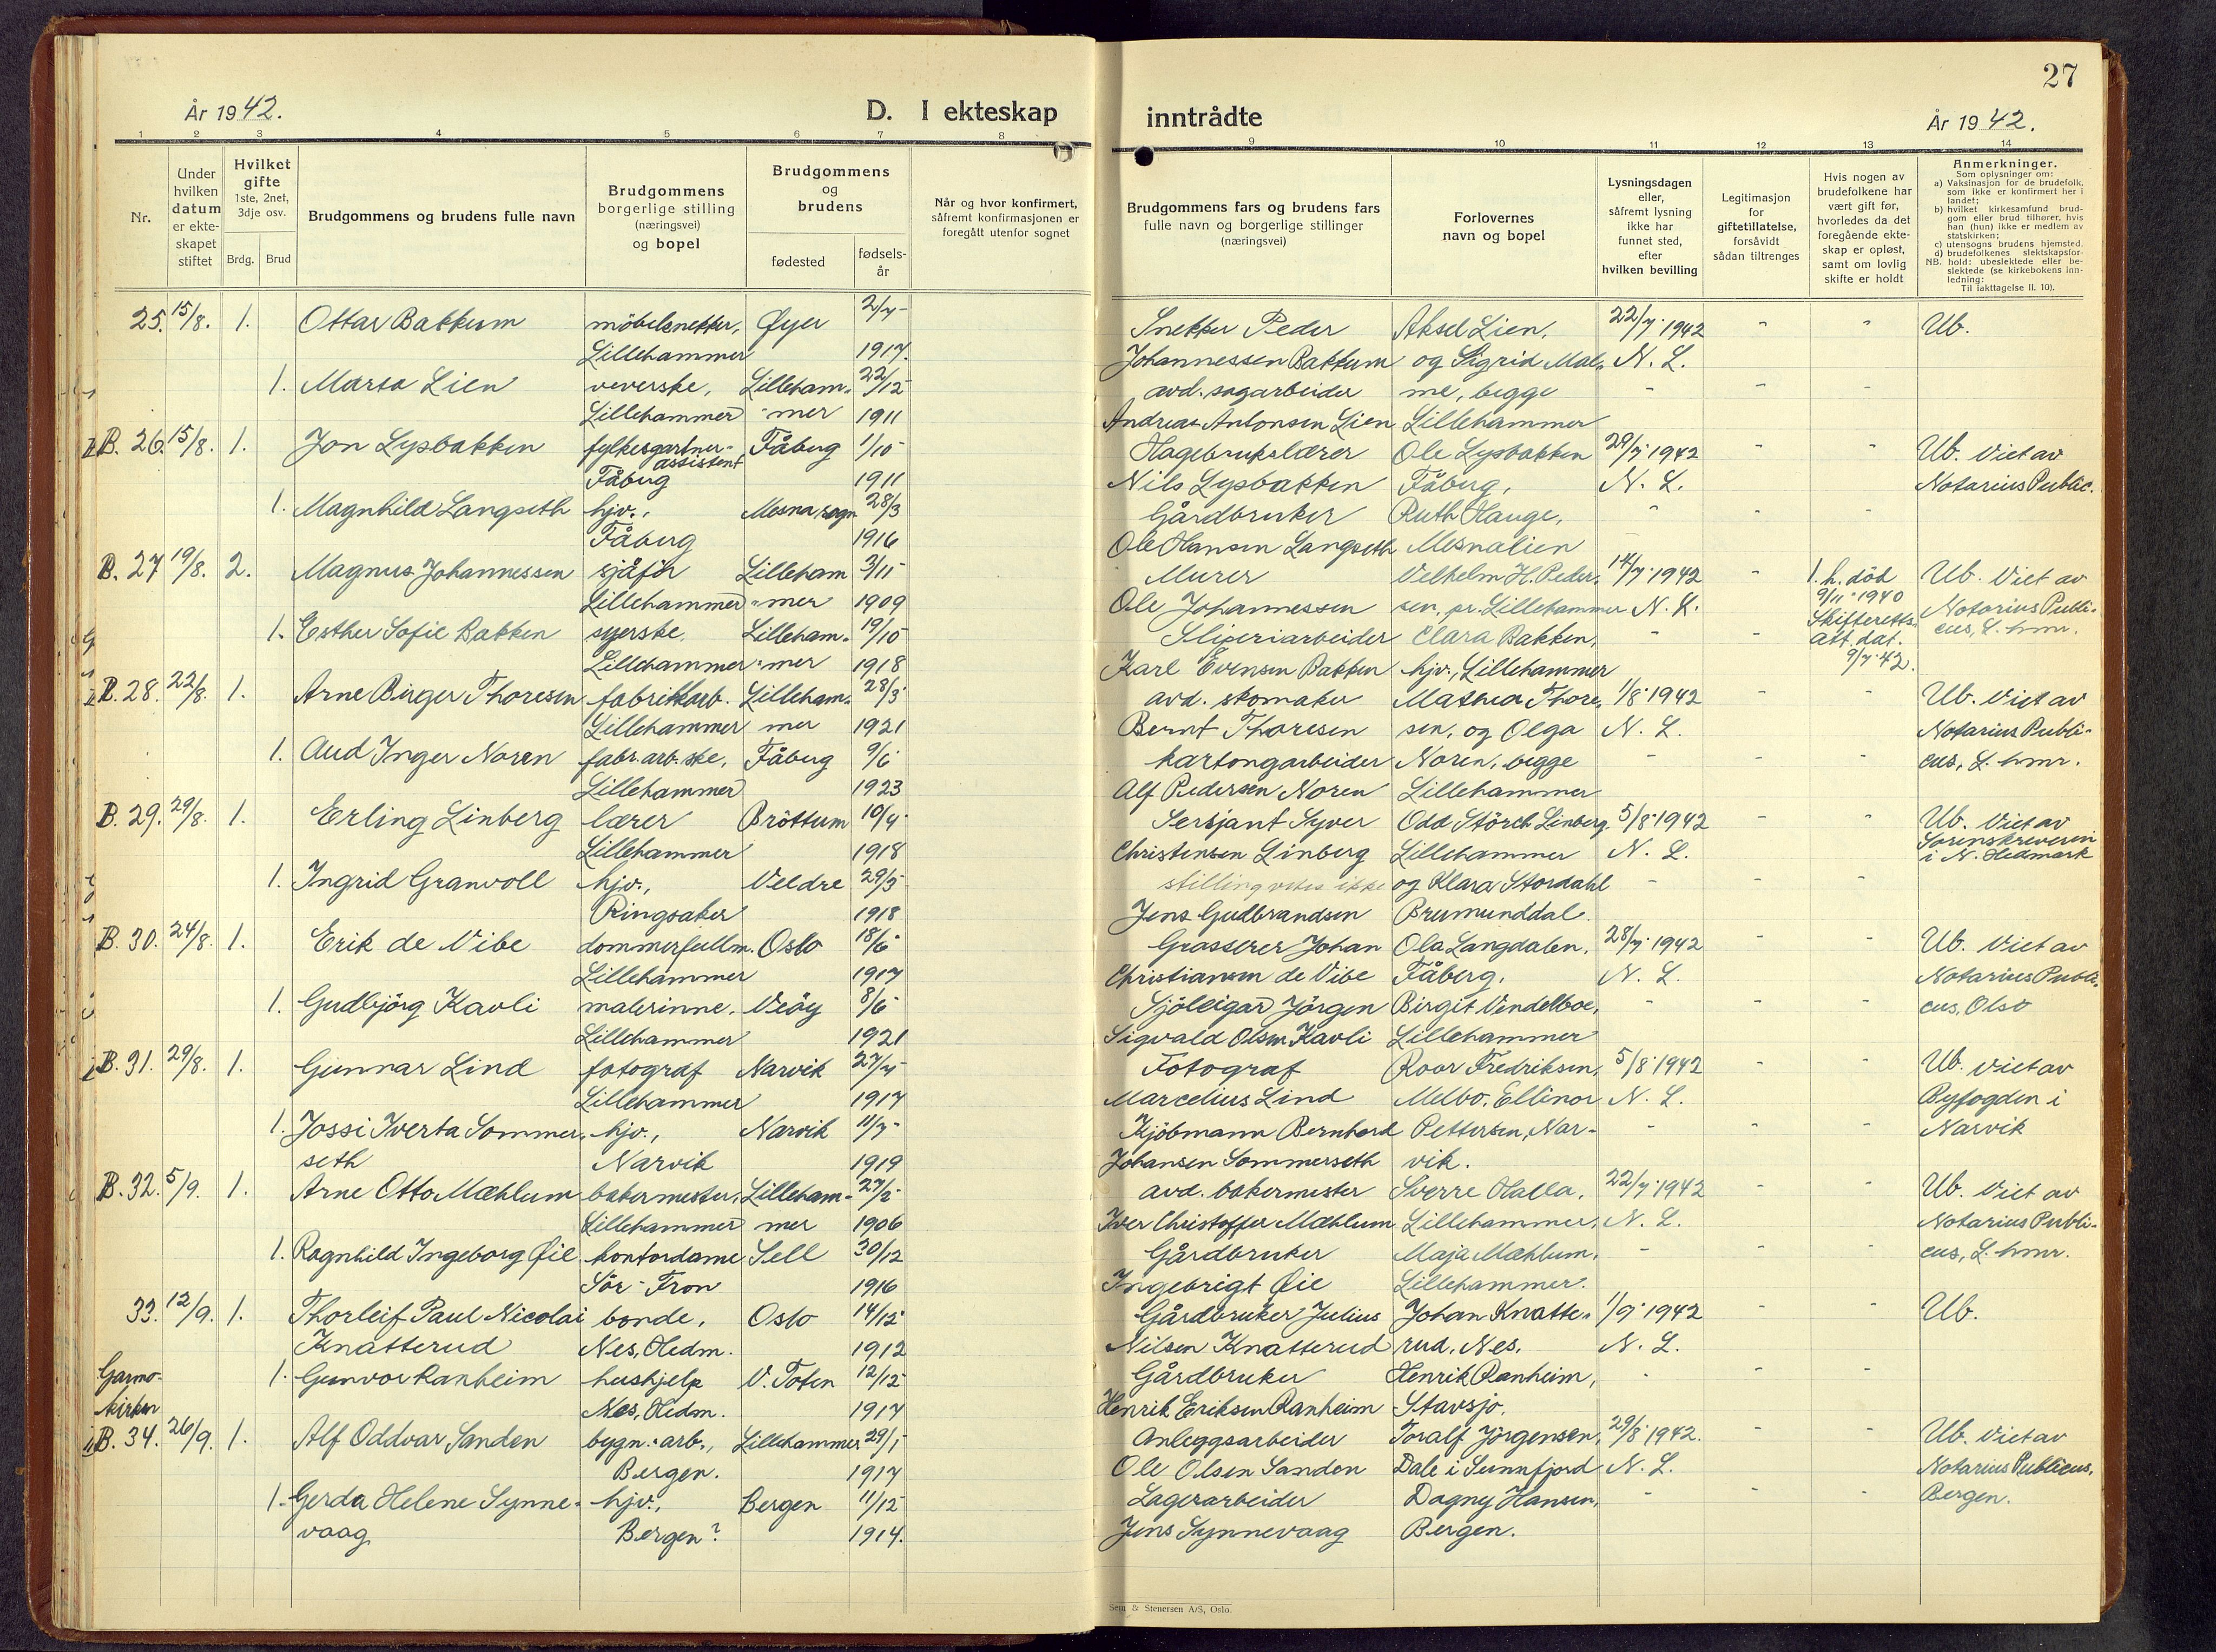 27
År 1942.
D. I ekteskap inntrådte
År 1942.
1 2 3 4 5 6 7 8 9 10 11 12 13 14
Nr.
Under hvilken datum er ekte-skapet stiftet
Hvilket gifte 1ste, 2net, 3dje osv.
Brdg. Brud
Brudgommens og brudens fulle navn
Brudgommens borgerlige stilling (næringsvei) og bopel
Brudgommens og brudens
fødested
fødsels-år
Når og hvor konfirmert, såfremt konfirmasjonen er foregått utenfor sognet
Brudgommens fars og brudens fars fulle navn og borgerlige stillinger (næringsvei)
Forlovernes navn og bopel
Lysningsdagen eller, såfremt lysning ikke har funnet sted, efter hvilken bevilling
Legitimasjon for giftetillatelse, forsåvidt sådan tiltrenges
Hvis nogen av brudefolkene har vært gift før, hvorledes da det foregående ekte-skap er opløst, samt om lovlig skifte er holdt
Anmerkninger.
Som oplysninger om:
a) Vaksinasjon for de brudefolk, som ikke er konfirmert her i landet;
b) hvilket kirkesamfund brud-gom eller brud tilhører, hvis han (hun) ikke er medlem av statskirken;
c) utensogns brudens hjemsted.
d) brudefolkenes slektskapsfor-hold: ubeslektede eller be-slektede (se kirkebokens inn-ledning:
NB.
Til iakttagelse II. 10).
25. 15/8. 1. Ottar Bakkum møbelsnekker, Øyer 2/7 Snekker Peder Aksel Lien, 22/7 1942 - - Ub.
Lillehammer 1917. Johannessen Bakkum og Sigrid Mal- N. L.
1. Marta Lien veverske, Lilleham- 22/12 avd. sagarbeider me, begge - - -
Lillehammer -mer 1911 Andreas Antonsen Lien Lillehammer
B. 26. 15/8. 1. Jon Lysbakken fylkesgartner- Fåberg 1/10 Hagebrukslærer Ole Lysbakken 29/7 1942 - - Ub. Viet av
assistent
Fåberg 1911 Nils Lysbakken Fåberg, N. L. Notarius Public.
1. Magnhild Langseth hjv., Mesna sogn 28/3 Gårdbruker Ruth Hauge, - - -
Fåberg 1916 Ole Hansen Langseth Mesnalien
B. 27 19/8. 2. Magnus Johannessen sjåfør Lilleham 3/11 Murer Vilhelm H. Peder- 14/7 1942 - 1. h. død Ub. Viet av
Lillehammer -mer 1909 Ole Johannessen sen, pr. Lillehammer N. L. 9/11 1940 Notarius Publi-
1. Esther Sofie Bakken syerske, Lilleham- 19/10 Sliperiarbeider Clara Bakken, - - Skifteretts- cus, L.hmr.
att. dat.
Lillehammer -mer 1918 Karl Evensen Bakken hjv., Lillehammer 9/7 42.
B. 28. 22/8. 1. Arne Birger Thoresen fabrikkarb. Lilleham- 28/3 avd. skomaker Mathea Thore- 1/8 1942 - - Ub. Viet av
Lillehammer mer 1921 Bernt Thoresen sen, og Olga N. L. Notarius Publi-
1. Aud Inger Noren fabr.arb.ske, Fåberg 9/6 kartongarbeider Noren, begge - - - cus, L.hmr.
Lillehammer 1923 Alf Pedersen Noren Lillehammer
B. 29. 29/8. 1. Erling Linberg lærer Brøttum 10/4 Sersjant Syver Odd Störch Linberg 5/8 1942 - - Ub. Viet av
Lillehammer 1918 Christensen Linberg Lillehammer N. L. Sorenskriveren
i N. Hedmark
1. Ingrid Granvoll hjv., Veldre 29/5 stilling vites ikke og Klara Stordahl - - -
Ringsaker 1918 Jens Gudbrandsen Brumunddal.
B. 30. 24/8. 1. Erik de Vibe dommerfullm. Oslo 18/6 Grosserer Johan Ola Langdalen, 28/7 1942 - - Ub. Viet av
Lillehammer 1917 Christiansen de Vibe Fåberg, N. L. Notarius Publi-
1. Gudbjørg Kavli malerinne, Veøy 8/6 Sjöleigar Jörgen Birgit Vindelboe, - - - cus, Olso
Lillehammer 1921 Sigvald Olsen Kavli Lillehammer
B. 31. 29/8. 1. Gunnar Lind fotograf Narvik 27/4 Fotograf Roar Fredriksen, 5/8 1942 - - Ub. Viet av
Lillehammer 1917 Marcelius Lind Melbo, Ellinor N. L. Byfogden i
1. Jossi Iverta Sommer- hjv., Narvik 11/7 Kjöbmann Bernhard Pettersen, Nar- - - - Narvik
seth Narvik 1919 Johansen Sommerseth vik.
B. 32. 5/9. 1. Arne Otto Mæhlum bakermester, Lilleham- 27/2 avd. bakermester Sverre Halla, 22/7 1942 - - Ub. Viet av
Lillehammer mer 1906 Iver Christoffer Mæhlum Lillehammer, N. L. Notarius Publi-
1. Ragnhild Ingeborg Øie kontordame Sell 30/12 Gårdbruker Maja Mæhlum, - - - cus, L.hmr.
Sør-Fron 1916 Ingebrigt Øie Lillehammer.
33. 12/9. 1. Thorleif Paul Nicolai bonde, Oslo 14/12 Gårdbruker Julius Johan Knatte- 1/9 1942 - - Ub.
Knatterud Nes, Hedm. 1912 Nilsen Knatterud rud, Nes. N. L.
Garmo- 1. Gunvor Ranheim hushjelp V. Toten 12/12 Gårdbruker Henrik Ranheim, - - -
kirken Nes, Hedm. 1917 Henrik Eriksen Ranheim Stavsjø.
B. 34. 26/9. 1. Alf Oddvar Sanden bygn.-arb., Lillehammer 29/1 Anleggsarbeider Toralf Jørgensen, 29/8 1942. - - Ub. Viet av
Bergen. 1917 Ole Olsen Sanden Dale i Sunnfjord N. L. Notarius Publicus,
1. Gerda Helene Synne- hjv., Bergen 11/12 Lagerarbeider Dagny Hansen, - - - Bergen.
vaag Bergen? 1914. Jens Synnevaag Bergen.
Sem & Stenersen A/S, Oslo.